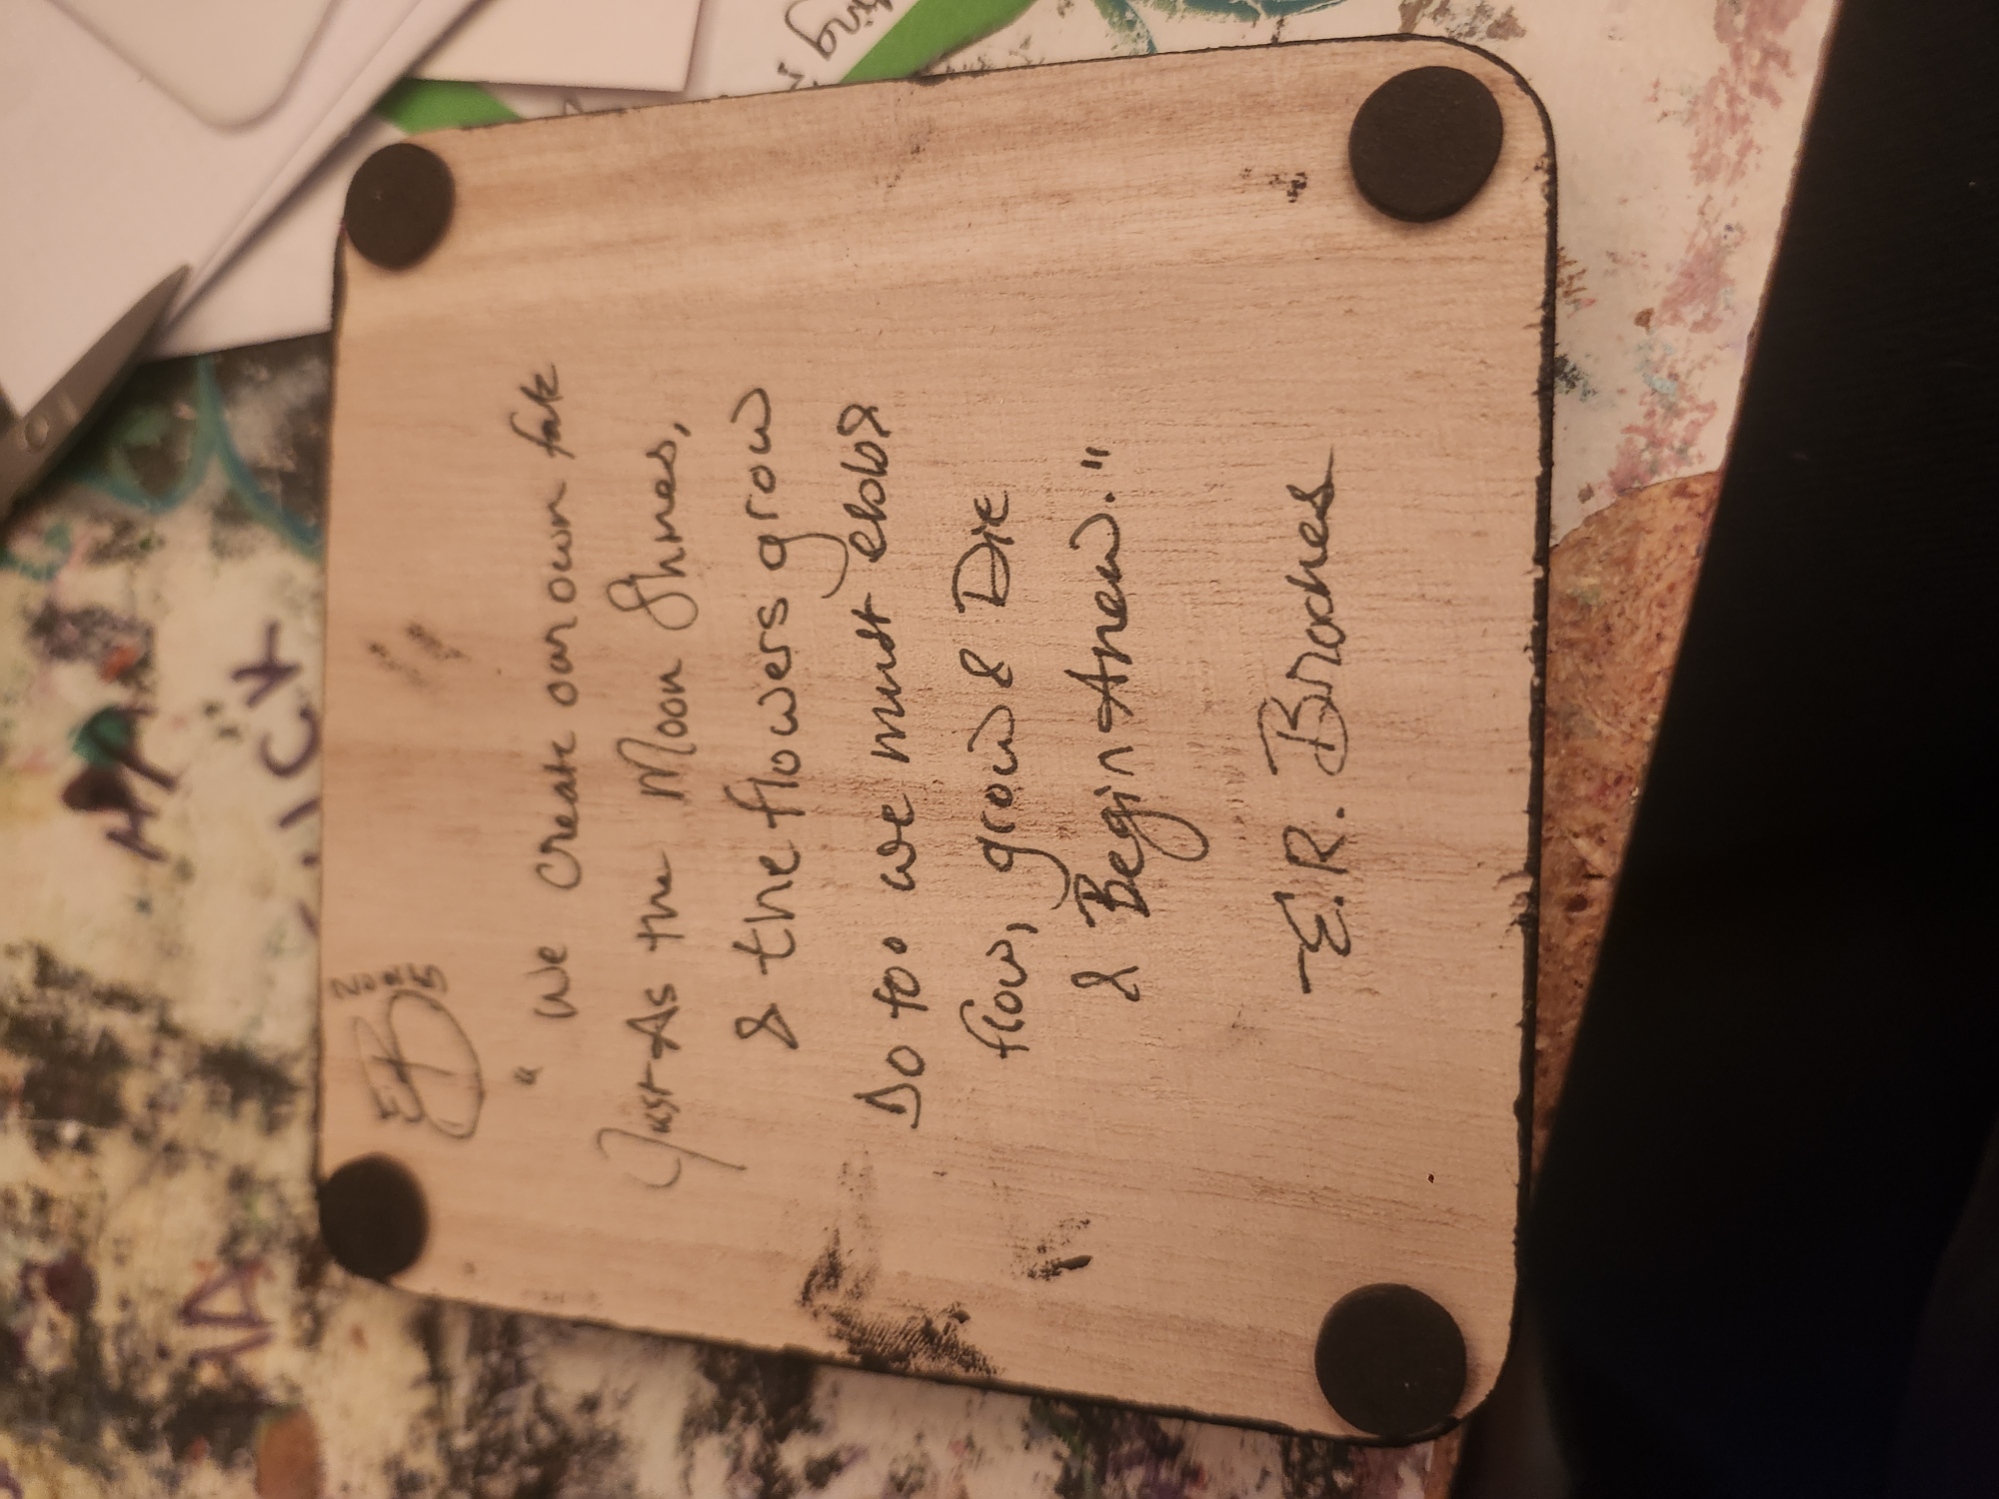 EB
"We create our own fate
Just As the Moon Shines,
& the flowers grow
Do too we must ebb &
flow, grow & Die
& Begin Anew."
—E.R. Broches